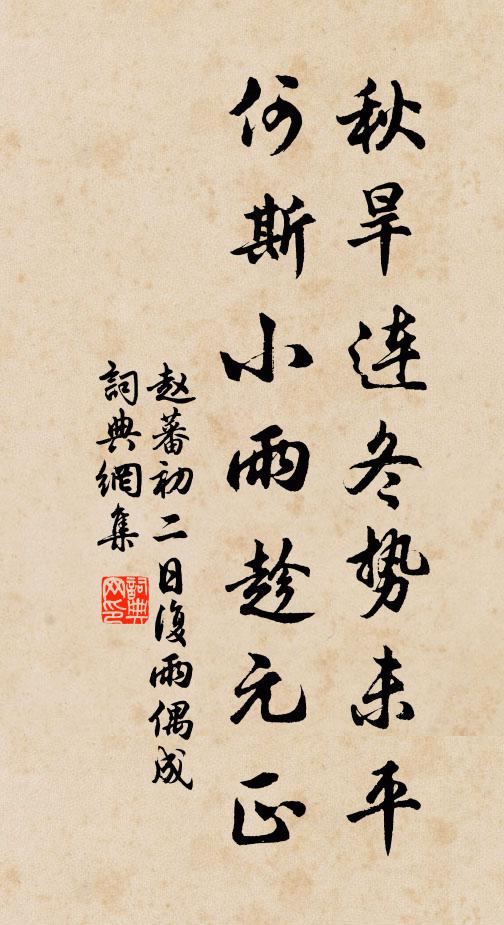 秋旱连冬势未平
何斯小雨趁元正
赵蕃初二日復雨偶成
詞典網集
詞典网印